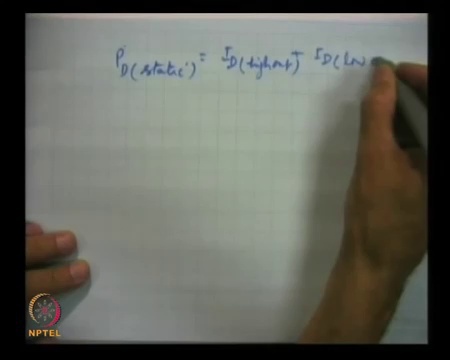 P_D(static) = I_D(high out) + I_D(low
NPTEL